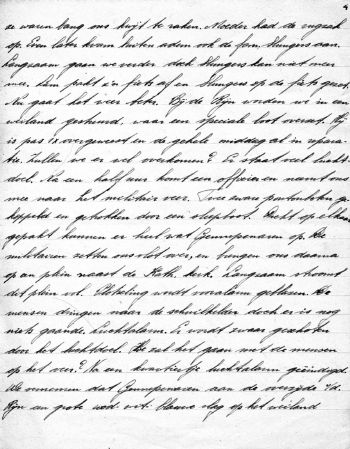 4
ze waren bang ons kwijt te raken. Moeder had de rugzak
op. Even later kwam buiten adem ook de fam. Slungers aan.
Langzaam gaan we verder doch Slungers kan niet meer
mee. Hem pakt z'n fiets af en Slungers op de fiets gezet.
Nu gaat het iets beter. Bij de Rijn worden we in een
weiland gestuurd, waar een speciale boot overzet. Hij
is pas 1x overgeweest en de gehele middag al in repara-
tie. Zullen we er wel overkomen? Er staat veel lucht-
doel. Na een half uur komt een officier en neemt ons
mee naar het militair veer. Twee zware pontonboten ge-
koppeld en getrokken door een sleepboot. Dicht op elkaar
gepakt kunnen er heel wat Gennepenaren op. De
militairen zetten ons vlot over, en brengen ons daarna
op een plein naast de Kath. kerk. Langzaam stroomt
dit plein vol. Plotseling wordt vooralarm geblazen. De
mensen dringen naar de schuilkelder doch er is nog
niets gaande. Luchtalarm. Er wordt zwaar geschoten
door het luchtdoel. Hoe zal het gaan met de mensen
op het veer? Na een kwartiertje luchtalarm geëindigd.
We vernemen dat Gennepenaren aan de overzijde v/d.
Rijn in grote nood zit. Blauwe slag op het weiland